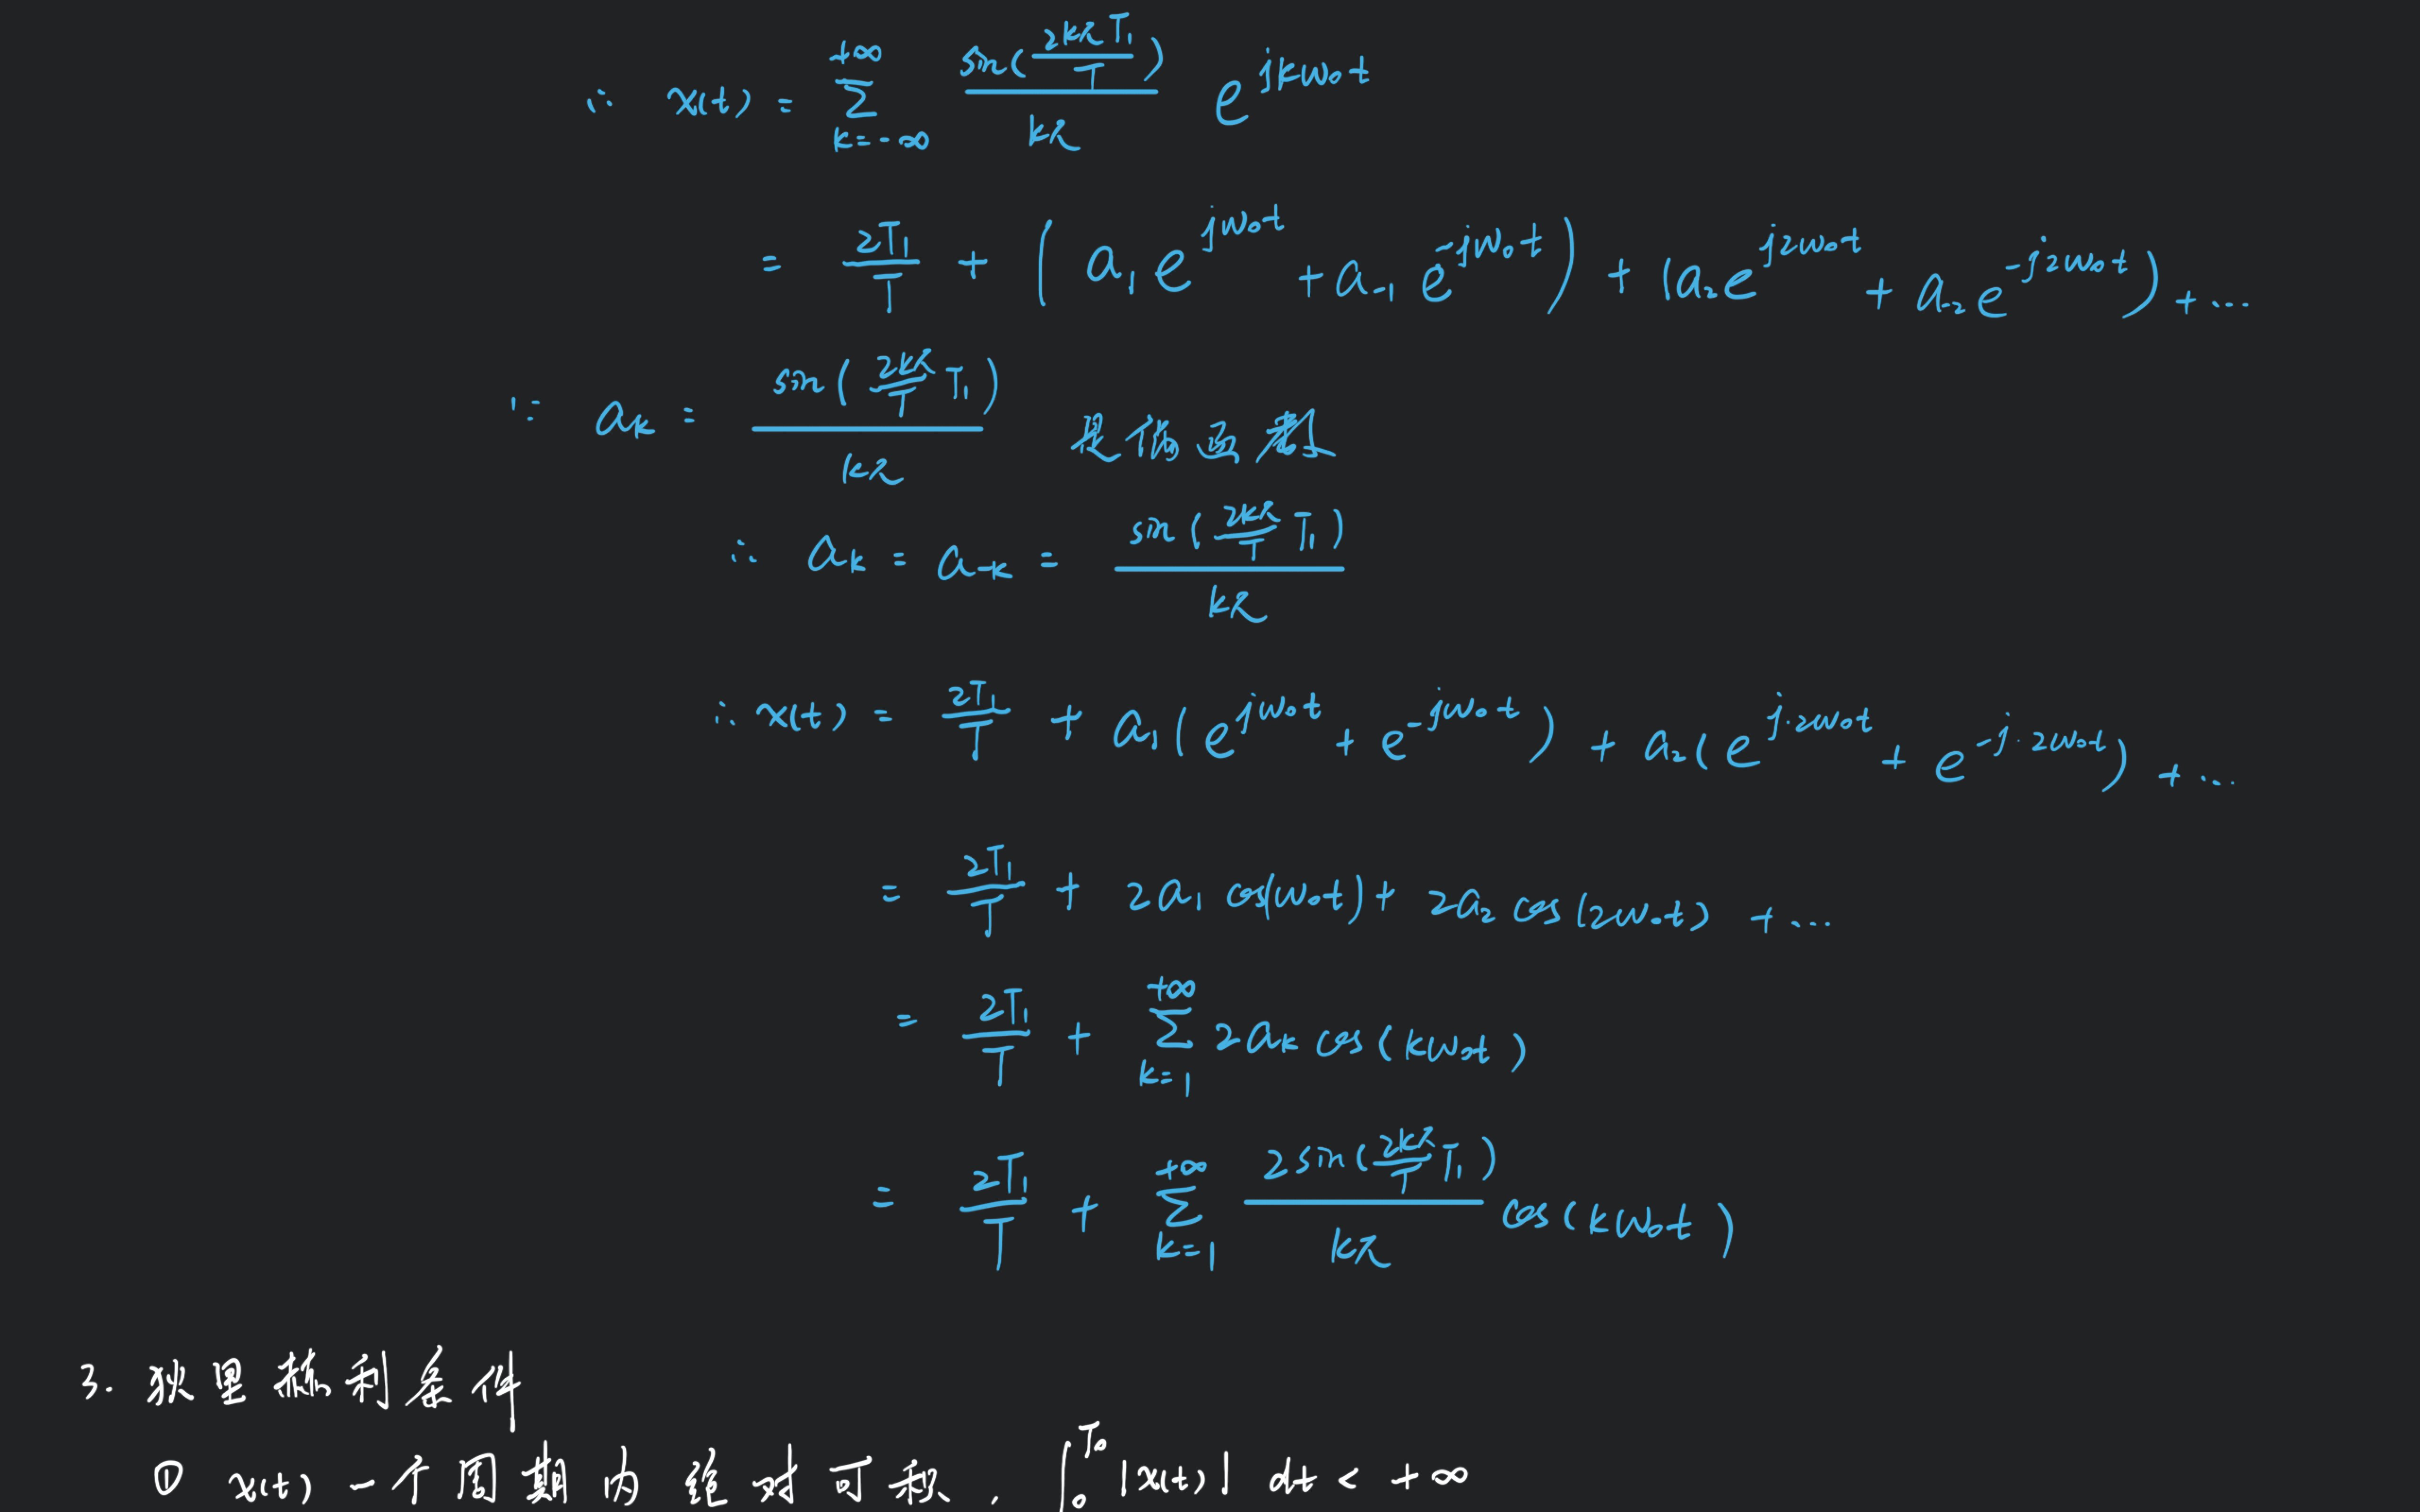 ∴ x(t) = \sum_{k=-∞}^{+∞} \frac{sin(\frac{2kπT_1}{T})}{kπ} e^{jkω_0t}
= \frac{2T_1}{T} + (a_1 e^{jω_0t} + a_{-1} e^{-jω_0t}) + (a_2 e^{j2ω_0t} + a_{-2} e^{-j2ω_0t}) + ...
∵ a_k = \frac{sin(\frac{2kπ}{T}T_1)}{kπ} 是偶函数
∴ a_k = a_{-k} = \frac{sin(\frac{2kπ}{T}T_1)}{kπ}
∴ x(t) = \frac{2T_1}{T} + a_1(e^{jω_0t} + e^{-jω_0t}) + a_2(e^{j·2ω_0t} + e^{-j·2ω_0t}) + ...
= \frac{2T_1}{T} + 2a_1 cos(ω_0t) + 2a_2 cos(2ω_0t) + ...
= \frac{2T_1}{T} + \sum_{k=1}^{+∞} 2a_k cos(kω_0t)
= \frac{2T_1}{T} + \sum_{k=1}^{+∞} \frac{2sin(\frac{2kπ}{T}T_1)}{kπ} cos(kω_0t)
3. 狄里赫利条件
① x(t) 一个周期内绝对可积, \int_0^{T_0} |x(t)| dt < +∞